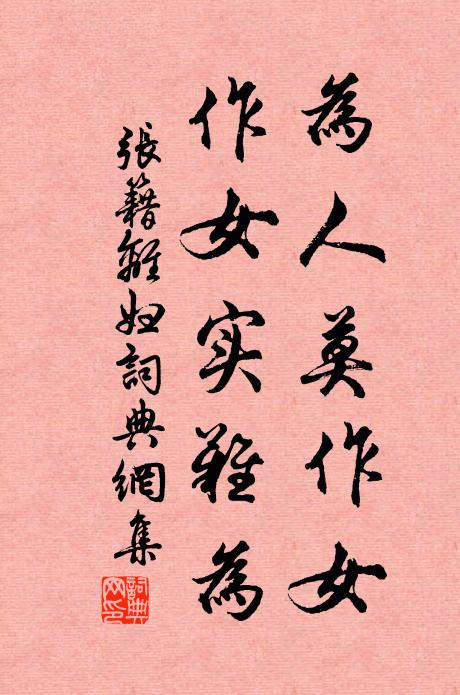 為人莫作女
作女实難為
張籍離婦詞典網集
詞典網印